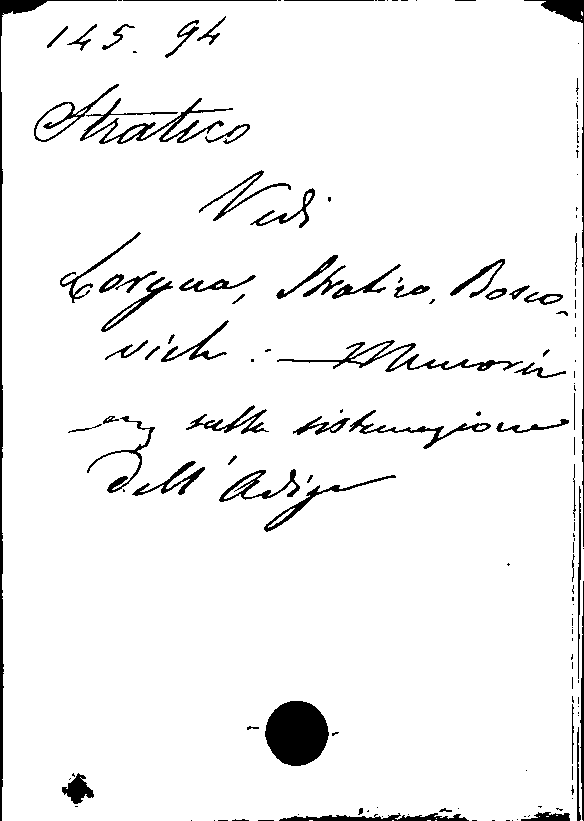 145. 94
Stratico
Vedi
Lorgna, Stratico, Bosco-
vich : — Memorie
sulla sistemazione
dell'Adige